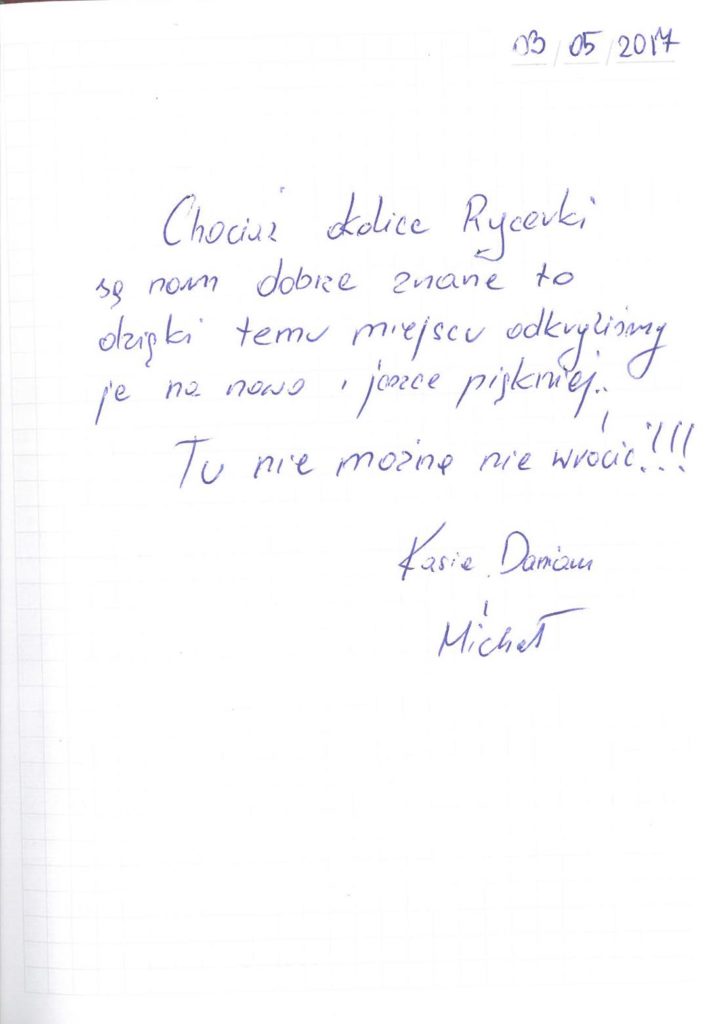 03/05/2017
Chociaż okolice Rycerki
są nam dobrze znane to
dzięki temu miejscu odkryliśmy
je na nowo i jeszcze piękniej..
Tu nie można nie wrócić!!!!
Kasia, Damian
i
Michał